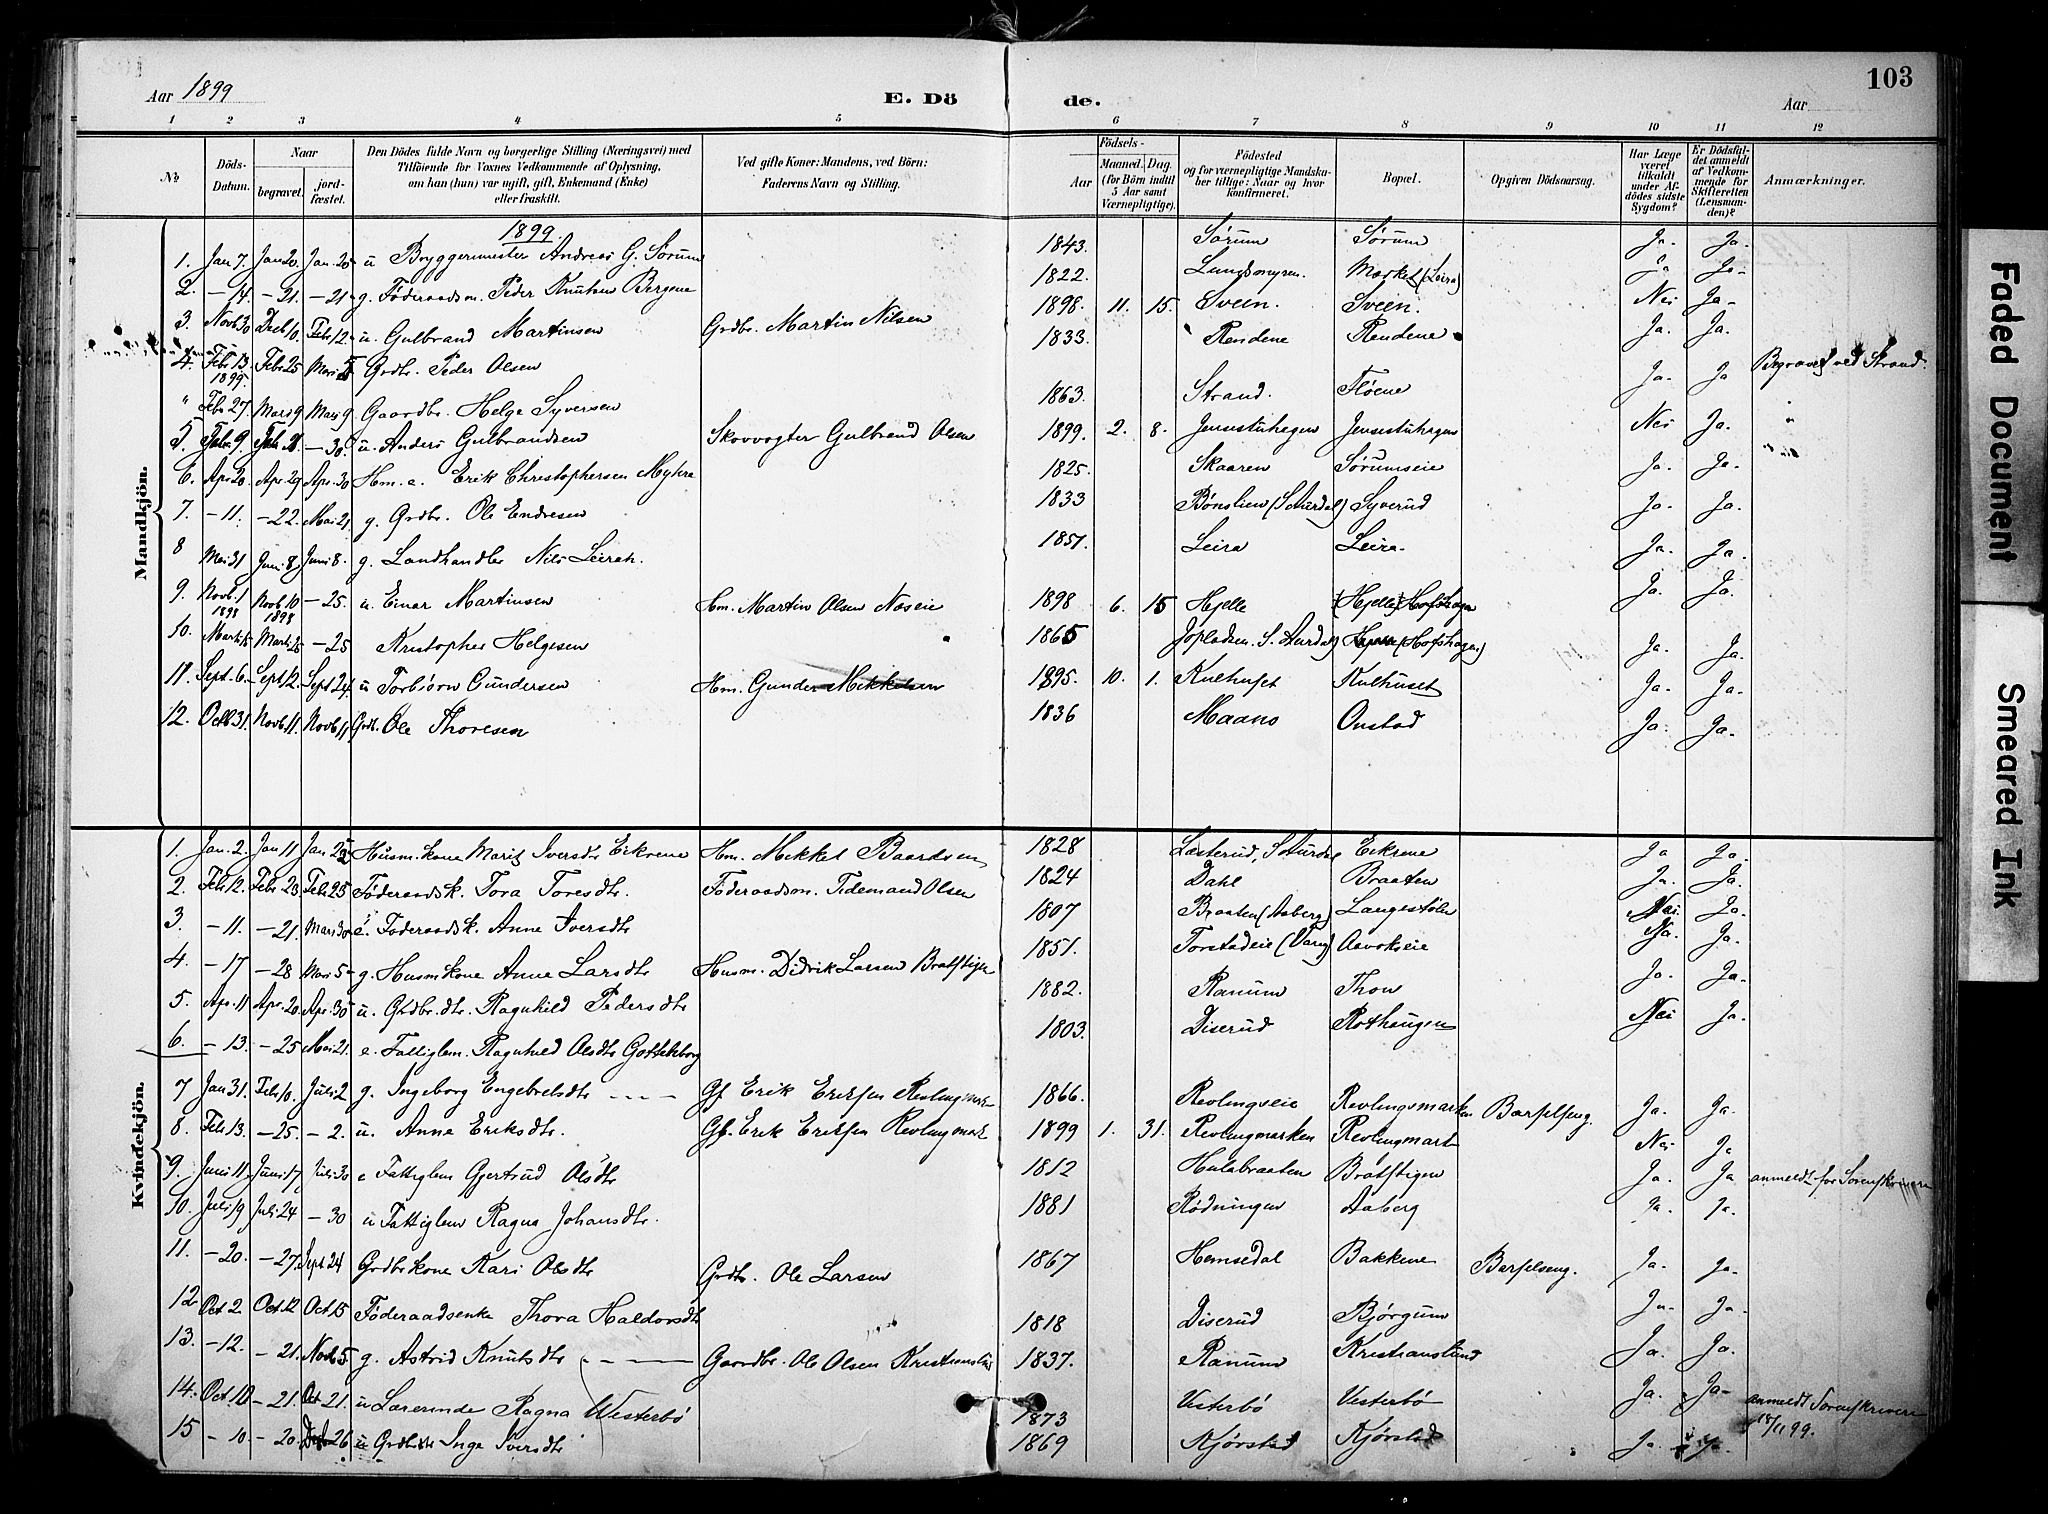 103
Aar 1899
E. Dö
de.
Aar
1 2 3 4 5 6 7 8 9 10 11 12
No
Döds-Datum.
Naar
begravet.
jord-fæstet.
Den Dödes fulde Navn og borgerlige Stilling (Næringsvei) med Tilföiende for Voxnes Vedkommende af Oplysning, om han (hun) var ugift, gift, Enkemand (Enke) eller fraskilt.
Ved gifte Koner: Mandens, ved Börn: Faderens Navn og Stilling.
Aar
Födsels-
Maaned. Dag.
(for Börn indtil 5 Aar samt Værnepligtige).
Födested og for værnepligtige Mandskaber tillige: Naar og hvor konfirmeret.
Bopæl.
Opgiven Dödsaarsag.
Har Læge været tilkaldt under Afdödes sidste Sygdom?
Er Dödsfaldet anmeldt af Vedkommende for Skifteretten (Lensmanden)?
Anmærkninger.
Mandkjön.
1899
1. Jan 7. Jan 20. Jan. 20 u Bryggermester Andreas G. Sørum 1843. Sørum Sørum Ja. Ja.
2. -14. -21. -21 g. Föderaadsm. Peder Knutsen Bergene 1822. Lundsmyren. Market (Leira) Ja Ja
3. Novb 30 Decb 10. Feb. 12 u. Gulbrand Martinsen Grdbr. Martin Nilsen 1898. 11. 15. Sveen. Sveen. Nei Ja
4. Feb 13 1899. Feb 25 Mars 5 Grdbr. Peder Olsen 1833. Rendene Rendene Ja. Ja.
" Feb 27. Mars 9 Mars 9 Gaardbr. Helge Syversen 1863. Strand. Fløene Ja. Ja Begravet ved Strand.
5. Feb. 9. Feb. 21 -30. u. Anders Gulbrandsen Skovvogter Gulbrand Olsen 1899. 2. 8. Jensestuhagen Jensestuhagen Nei Ja.
6. Apr 20. Apr 29 Apr 30 Hm. e. Erik Christophersen Myhre 1825. Skaaren Sørumseie Ja. Ja.
7. -11. -22. Mai 21. g. Grdbr. Ole Endresen 1833 Bønslien (S. Aurdal) Syverud Ja. Ja.
8 Mai 31 Juni 8 Juni 8. g. Landhandler Nils Leirah. 1857. Leira Leira. Ja. Ja.
9. Novb. 1 1898 Novb 10 1898 -25. u. Einar Martinsen Hm. Martin Olsen Næseie 1898 6. 15 Hjelle (Hjelle) Hofshagen Ja. Ja.
10. Marts 15 Marts 25 -25 Kristopher Helgesen 1865 S. Aurdal (Hofshagen) Ja. Ja.
11. Sept. 6. Sept 12. Sept 24 u Torbjørn Gundersen Hm. Gunder Mikkelsen 1895. 10. 1. Kulhuset Kulhuset Ja. Ja.
12. Octb 31. Novb. 11. Novb 11 Grdb. Ole Thoresen 1836 Maans Onstad Ja. Ja.
Kvindekjön.
1. Jan. 2. Jan 11 Jan 22 Husm. kone Marit Iversdtr Eikrene Hm. Mikkel Baardsen 1828 Lasterud, S. Aurdal Eikrene Ja Ja.
2. Feb. 12. Feb. 23. Feb 25 Föderaadsk. Tora Toresdtr. Föderaadsm. Tidemand Olsen 1824 Dahl Braaten Ja. Ja.
3. -11. -21. Mars 30 e. Föderaadsk. Anne Iversdtr 1807 Braaten (Aaberg) Langestølen Nei. Ja.
4. -17 -28 Mars 5 g. Husm. kone Anne Larsdtr Husm. Didrik Larsen Bratstigen 1851. Torstadeie (Vang) Aavokseie Ja. Ja.
5. Apr. 11 Apr. 20. Apr. 30 u. Grdbr. dtr. Ragnhild Pedersdtr 1882. Ranum Thon Ja. Ja.
6. -13. -25 Mai 21. e. Fattiglem. Ragnhild Olsdtr Gotteborg 1803. Diserud Rothaugen Nei Ja.
7 Jan 31. Feb 10. Juli 2 g. Ingeborg Engebretsdtr Gf. Erik Eriksen Revlingmark 1866. Revlingseie Revlingsmarken Barselseng. Ja. Ja.
8. Feb. 13. -25. -2. u. Anne Eriksdtr. Gf. Erik Eriksen Revlingmark 1899 1. 31. Revlingmarken Revlingmark Nei Ja
9. Juni 11. Juni 17 Juli 30 e Fattiglem Gjertrud Olsdtr 1812 Hulabraaten Bratstigen Ja. Ja anmeldt for Sorenskriveren
10. Juli 19 Juli 24 -30 u Fattiglem Ragna Johansdtr. 1881 Rødningen Aaberg Ja. Ja.
11. -20. -27. Sept 24 Grdbrkone Kari Olsdtr Grdbr. Ole Larsen 1867 Hemsedal Bakkene Barselseng. Ja. Ja.
12 Oct 2. Oct 12 Oct. 15 Föderaadsenke Thora Haldorsdtr 1818 Diserud Bjørgum Ja. Ja.
13. -12. -21. Novb 5 g. Astrid Knutsdtr Gaardbr. Ole Olsen Kristianslund 1837. Ranum Kristianslund Ja. Ja.
14. Oct 10 -21. Oct 21. u Lærerinde Ragna Westerbö 1873 Vesterbö Vesterbö Ja. Ja anmeldt Sorenskriveren 18/11 99.
15 -10. -20. 26 u Grdbrdtr Inga Iversdtr 1869 Kjørstad Kjørstad Ja. Ja.
Faded Document
Smeared Ink